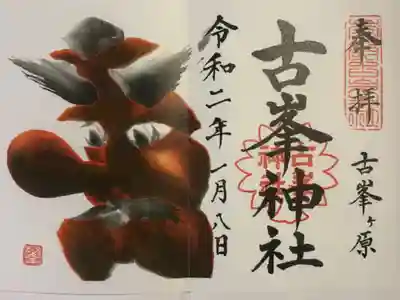 奉拝
古峯ヶ原
古峯神社
令和二年一月八日